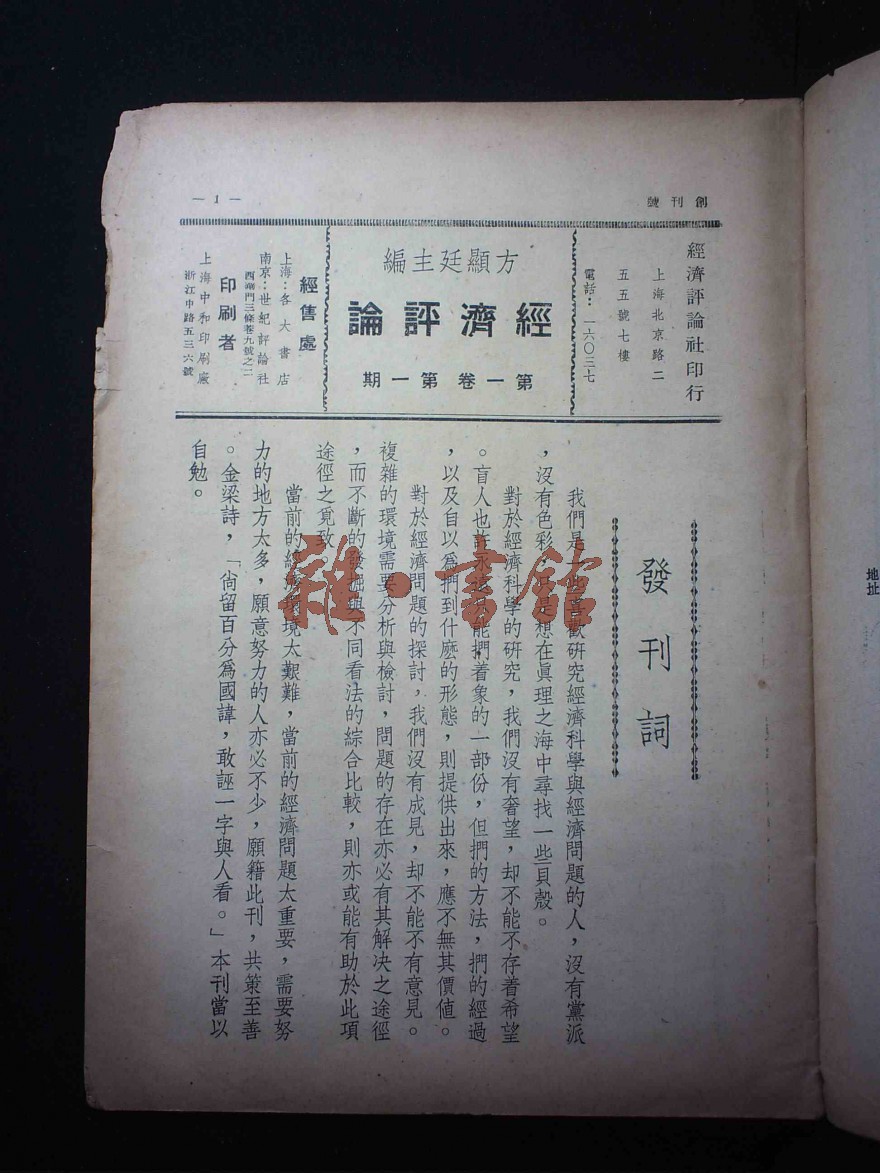 創刊號
— 1 —
經濟評論社印行
上海北京路二
五五號七樓
電話：一六〇三七
方顯廷主編
經濟評論
第一卷第一期
經售處
上海：各大書店
南京：世紀評論社
西華門三條巷九號之二
印刷者
上海中和印刷廠
浙江中路五三六號
發刊詞
我們是一些喜歡研究經濟科學與經濟問題的人，沒有黨派
，沒有色彩，只是想在眞理之海中尋找一些貝殼。
對於經濟科學的研究，我們沒有奢望，却不能不存着希望
。盲人也許永遠只能捫着象的一部份，但捫的方法，捫的經過
，以及自以爲捫到什麽的形態，則提供出來，應不無其價値。
對於經濟問題的探討，我們沒有成見，却不能不有意見。
複雜的環境需要分析與檢討，問題的存在亦必有其解决之途徑
，而不斷的發掘與不同看法的綜合比較，則亦或能有助於此項
途徑之覓致。
當前的經濟環境太艱難，當前的經濟問題太重要，需要努
力的地方太多，願意努力的人亦必不少，願籍此刊，共策至善
。金梁詩，「尙留百分爲國諱，敢誣一字與人看。」本刊當以
自勉。
雜·書館
地址